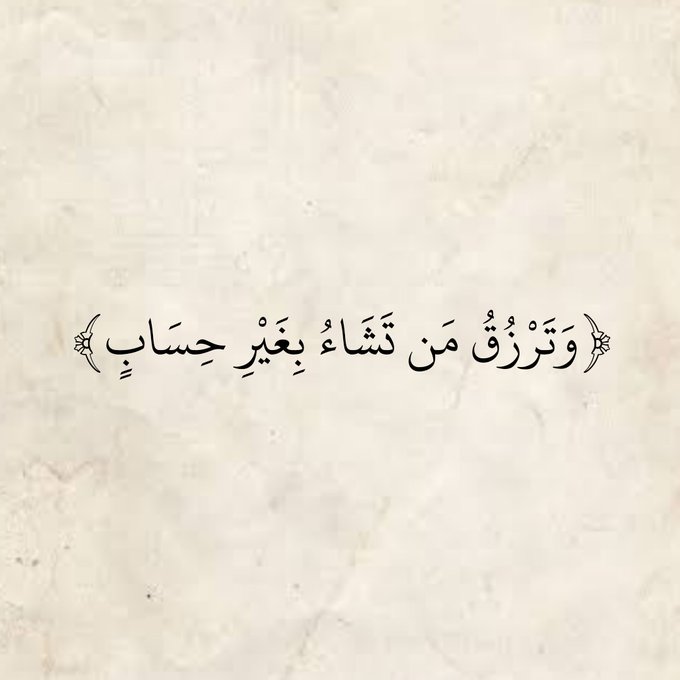 ﴿وَتَرْزُقُ مَن تَشَاءُ بِغَيْرِ حِسَابٍ﴾